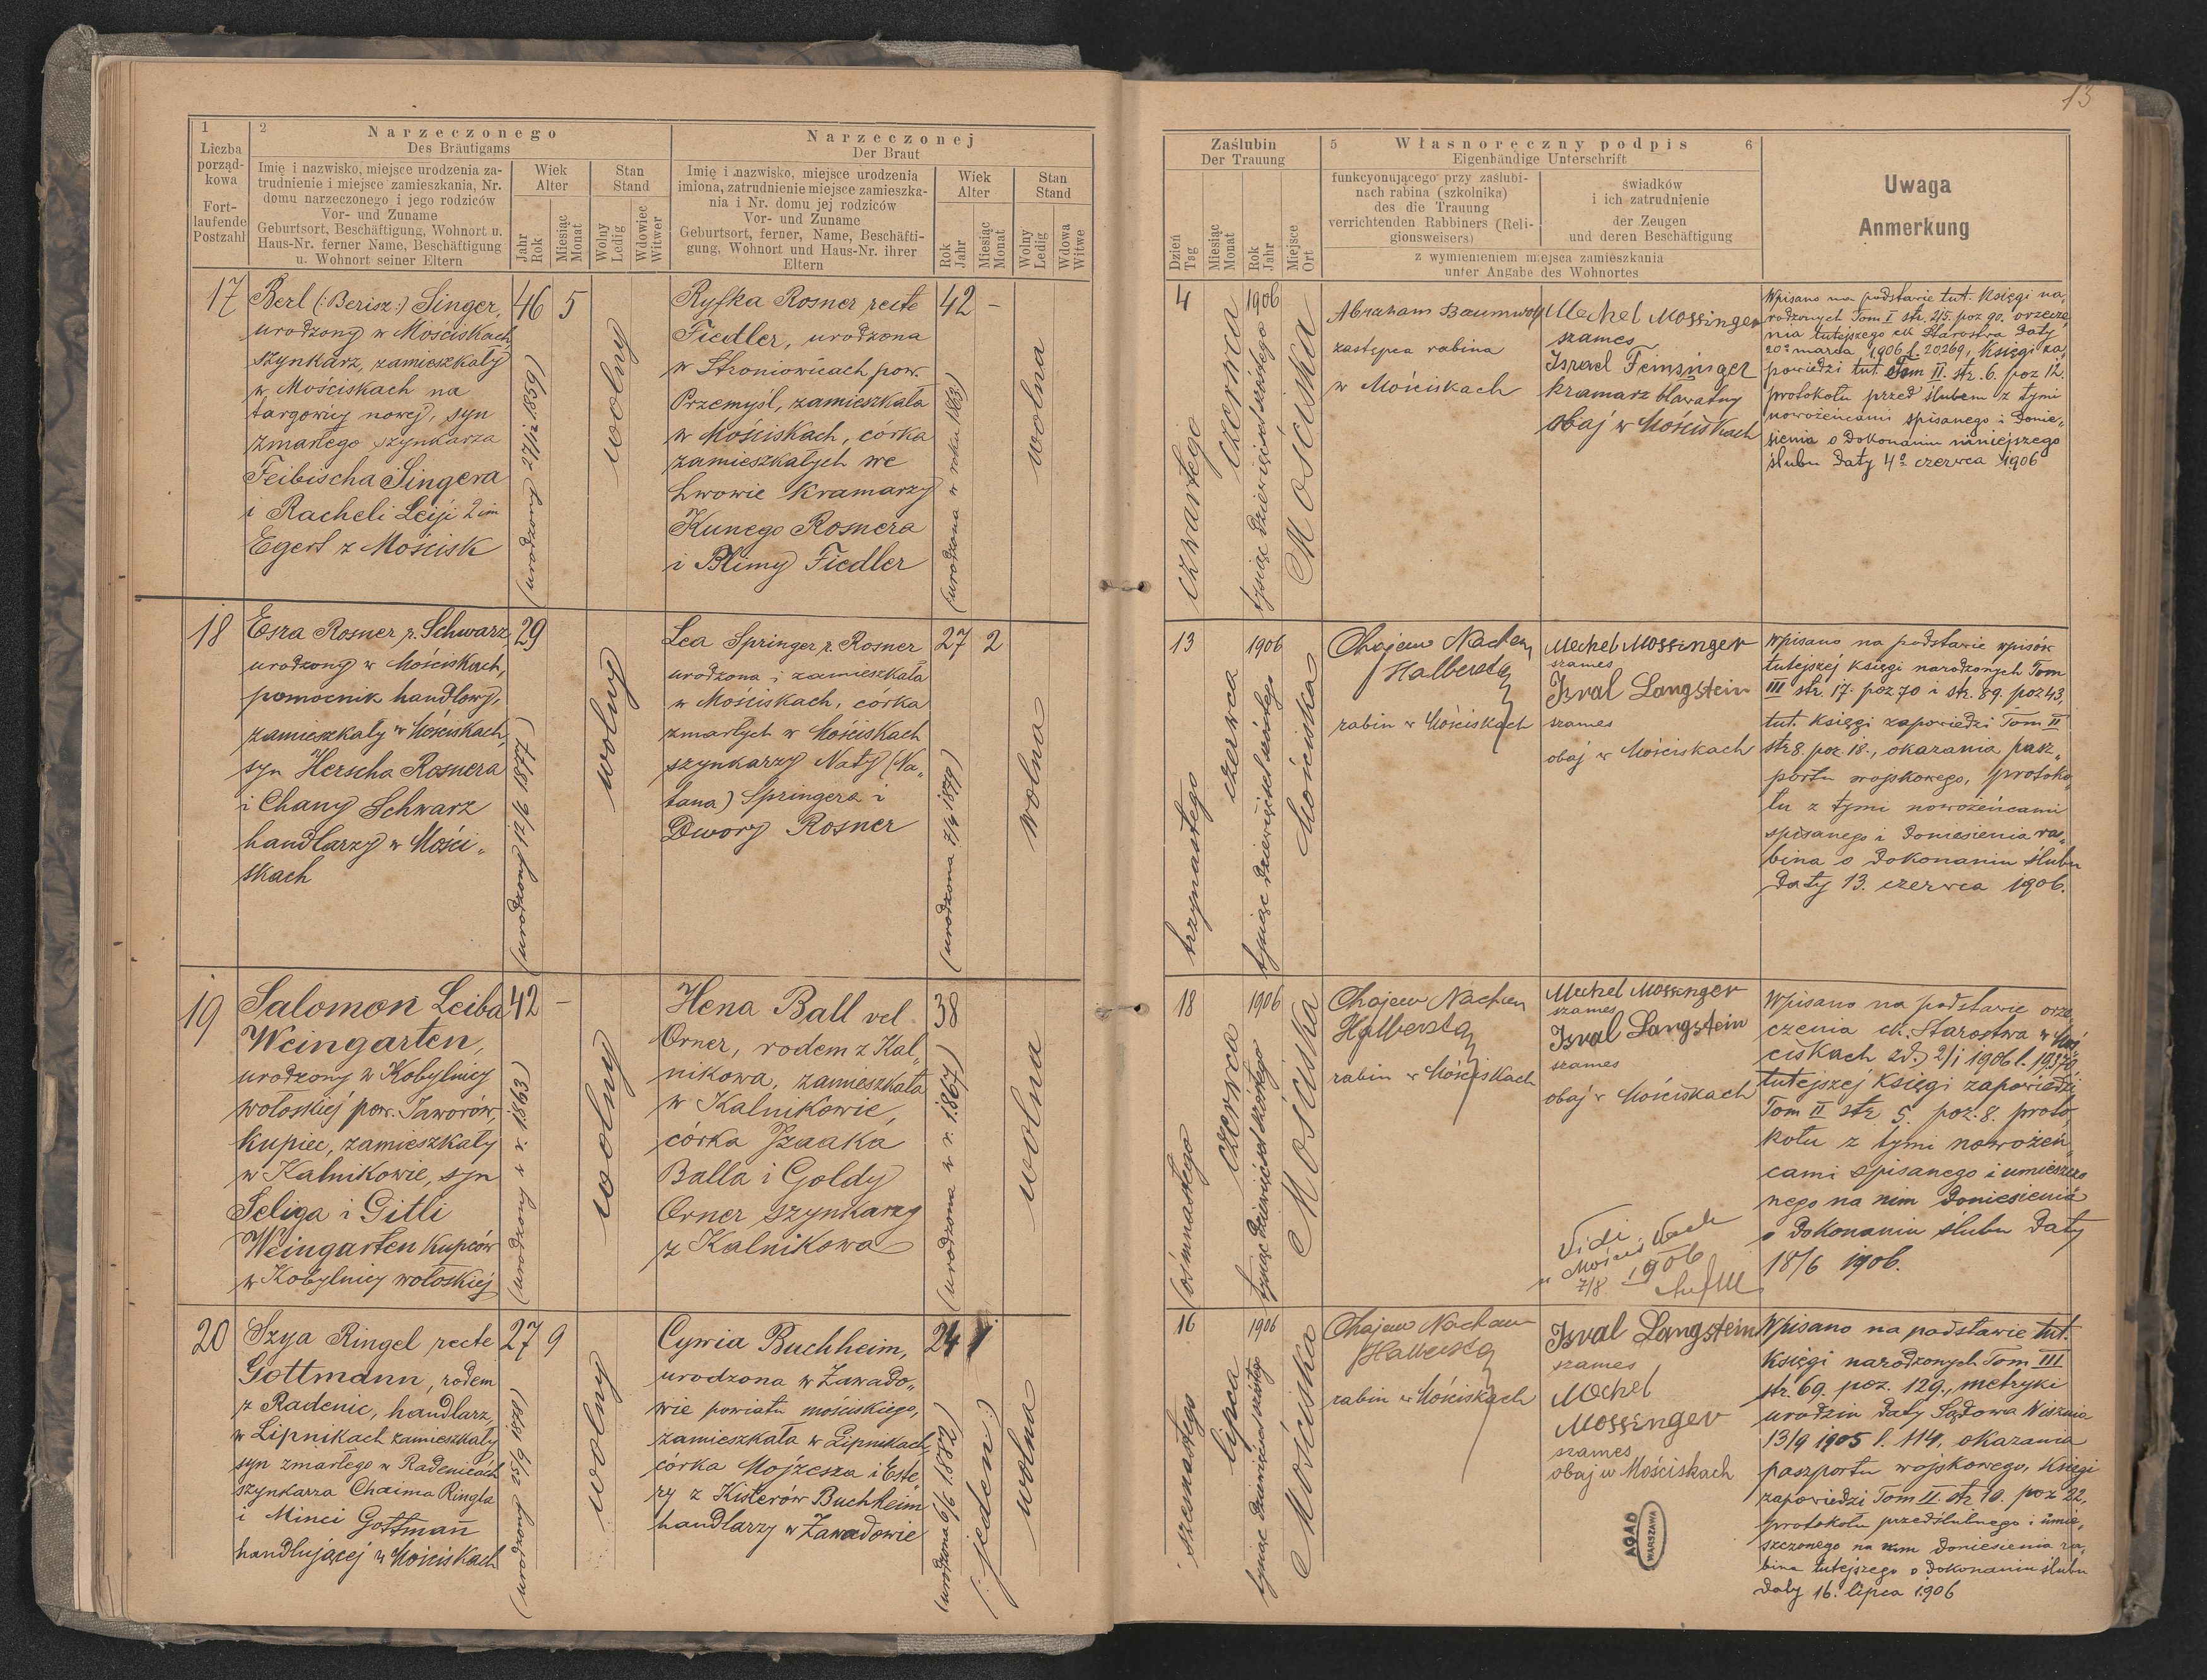 13
1
Liczba
porząd-
kowa
Fort-
laufende
Postzahl
2
Narzeczonego
Des Bräutigams
Imię i nazwisko, miejsce urodzenia za-
trudnienie i miejsce zamieszkania, Nr.
domu narzeczonego i jego rodziców
Vor- und Zuname
Geburtsort, Beschäftigung, Wohnort u.
Haus-Nr. ferner Name, Beschäftigung
u. Wohnort seiner Eltern
Wiek
Alter
Jahr
Rok
Miesiąc
Monat
Stan
Stand
Wolny
Ledig
Wdowiec
Witwer
Narzeczonej
Der Braut
Imię i nazwisko, miejsce urodzenia
imiona, zatrudnienie miejsce zamieszka-
nia i Nr. domu jej rodziców
Vor- und Zuname
Geburtsort, ferner, Name, Beschäfti-
gung, Wohnort und Haus-Nr. ihrer
Eltern
Wiek
Alter
Rok
Jahr
Miesiąc
Monat
Stan
Stand
Wolny
Ledig
Wdowa
Witwe
Zaślubin
Der Trauung
Dzień
Tag
Miesiąc
Monat
Rok
Jahr
Miejsce
Ort
5 Własnoręczny podpis 6
Eigenhändige Unterschrift
funkcyonującego przy zaślubi-
nach rabina (szkolnika)
des die Trauung
verrichtenden Rabbiners (Reli-
gionsweisers)
świadków
i ich zatrudnienie
der Zeugen
und deren Beschäftigung
z wymienieniem miejsca zamieszkania
unter Angabe des Wohnortes
Uwaga
Anmerkung
17
Berl (:Berisz:) Singer,
urodzony w Mościskach,
szynkarz, zamieszkały
w Mościskach na
targowicy nowej, syn
zmarłego szynkarza
Feibischa Singera
i Racheli Leiji 2im
Egert z Mościsk
46 5
(urodzony 27/12 1859)
wolny
Ryfka Rosner recte
Fiedler, urodzona
w Stroniowicach pow.
Przemyśl, zamieszkała
w Mościskach, córka
zamieszkałych we
Lwowie kramarzy
Kunego Rosnera
i Blimy Fiedler
42 -
(urodzona w roku 1863)
wolna
4
czwartego
czerwca
1906
tysiąc dziewięćset szóstego
Mościska
Abraham Baumwol
zastępca rabina
w Mościskach
Mechel Mossinger
szames
Israel Feinsinger
kramarz bławatny
obaj w Mościskach
Wpisano na podstawie tut. Księgi na„
rodzonych Tom I str. 215. poz 90. orzecze„
nia tutejszego ck Starostwa daty
20º marca 1906 l. 20269, Księgi za„
powiedzi tut. Tom II. str. 6. poz 12.
protokołu przed ślubem z tymi
nowożeńcami spisanego i donie„
sienia o dokonaniu niniejszego
ślubu daty 4º czerwca 1906
18
Esra Rosner r. Schwarz
urodzony w Mościskach,
pomocnik handlowy,
zamieszkały w Mościskach,
syn Herscha Rosnera
i Chany Schwarz
handlarzy w Mości„
skach
29
(urodzony 12/6 1877)
wolny
Lea Springer r. Rosner
urodzona i zamieszkała
w Mościskach, córka
zmarłych w Mościskach
szynkarzy Naty (Na„
tana) Springera i
Dwory Rosner
27 2
(urodzona 7/4 1879)
wolna
13
trzynastego
czerwca
1906
tysiąc dziewięćset szóstego
Mościska
Chajem Nachem
Halberstam
rabin w Mościskach
Mechel Mossinger
szames
Isral Langstein
szames
obaj w Mościskach
Wpisano na podstawie wpisów
tutejszej księgi narodzonych Tom
III str. 17. poz 70 i str. 89. poz 43,
tut. księgi zapowiedzi Tom II
str 8. poz. 18., okazania pasz„
portu wojskowego, protoko„
łu z tymi nowożeńcami
spisanego i doniesienia ra„
bina o dokonaniu ślubu
daty 13. czerwca 1906.
19
Salomon Leiba
Weingarten,
urodzony w Kobylnicy
wołoskiej pow. Jaworów,
kupiec, zamieszkały
w Kalnikowie, syn
Seliga i Gitli
Weingarten kupców
w Kobylnicy wołoskiej
42 -
(urodzony w r. 1863)
wolny
Hena Ball vel
Orner, rodem z Kal„
nikowa, zamieszkała
w Kalnikowie,
córka Izaaka
Balla i Goldy
Orner szynkarzy
z Kalnikowa
38
(urodzona w r. 1867)
wolna
18
(ośmnastego
czerwca
1906
tysiąc dziewięćset szóstego
Mościska
Chajem Nachem
Halberstam
rabin w Mościskach
Mechel Mossinger
szames
Isral Langstein
szames
obaj w Mościskach
Vidi
7/8 1906
Wpisano na podstawie orze„
czenia ck. Starostwa w Moś„
ciskach zd. 2/1 1906 l. 19378
tutejszej Księgi zapowiedzi
Tom II str 5. poz. 8. proto„
kołu z tymi nowożeń„
cami spisanego i umieszczo
nego na nim doniesienia
o dokonaniu ślubu daty
18/6 1906.
20
Szya Ringel recte
Gottmann, rodem
z Radenic, handlarz,
w Lipnikach zamieszkały
syn zmarłego w Radenicach
szynkarza Chaima Ringla
i Minci Gottmann
handlującej w Mościskach
27 9
(urodzony 25/9 1878)
wolny
Cywia Buchheim,
urodzona w Zawado„
wie powiatu mościskiego,
zamieszkała w Lipnikach,
córka Mojżesza i Este„
ry z Kisterów Buchheim
handlarzy w Zawadowie
24 1
(urodzona 6/6 1882)
(:jeden:)
wolna
16
szesnastego
lipca
1906
tysiąc dziewięćset szóstego
Mościska
Chajem Nachem
Halberstam
rabin w Mościskach
Isral Langstein
szames
Mechel
Mossinger
szames
obaj w Mościskach
AGAD
WARSZAWA
Wpisano na podstawie tut.
księgi narodzonych Tom III
str. 69. poz. 129., metryki
urodzin daty Sądowa Wisznia
13/9 1905 l. 114, okazania
paszportu wojskowego, Księgi
zapowiedzi Tom II. str. 10. poz 22,
protokołu przedślubnego i umie„
szczonego na nim doniesienia ra„
bina tutejszego o dokonaniu ślubu
daty 16. lipca 1906